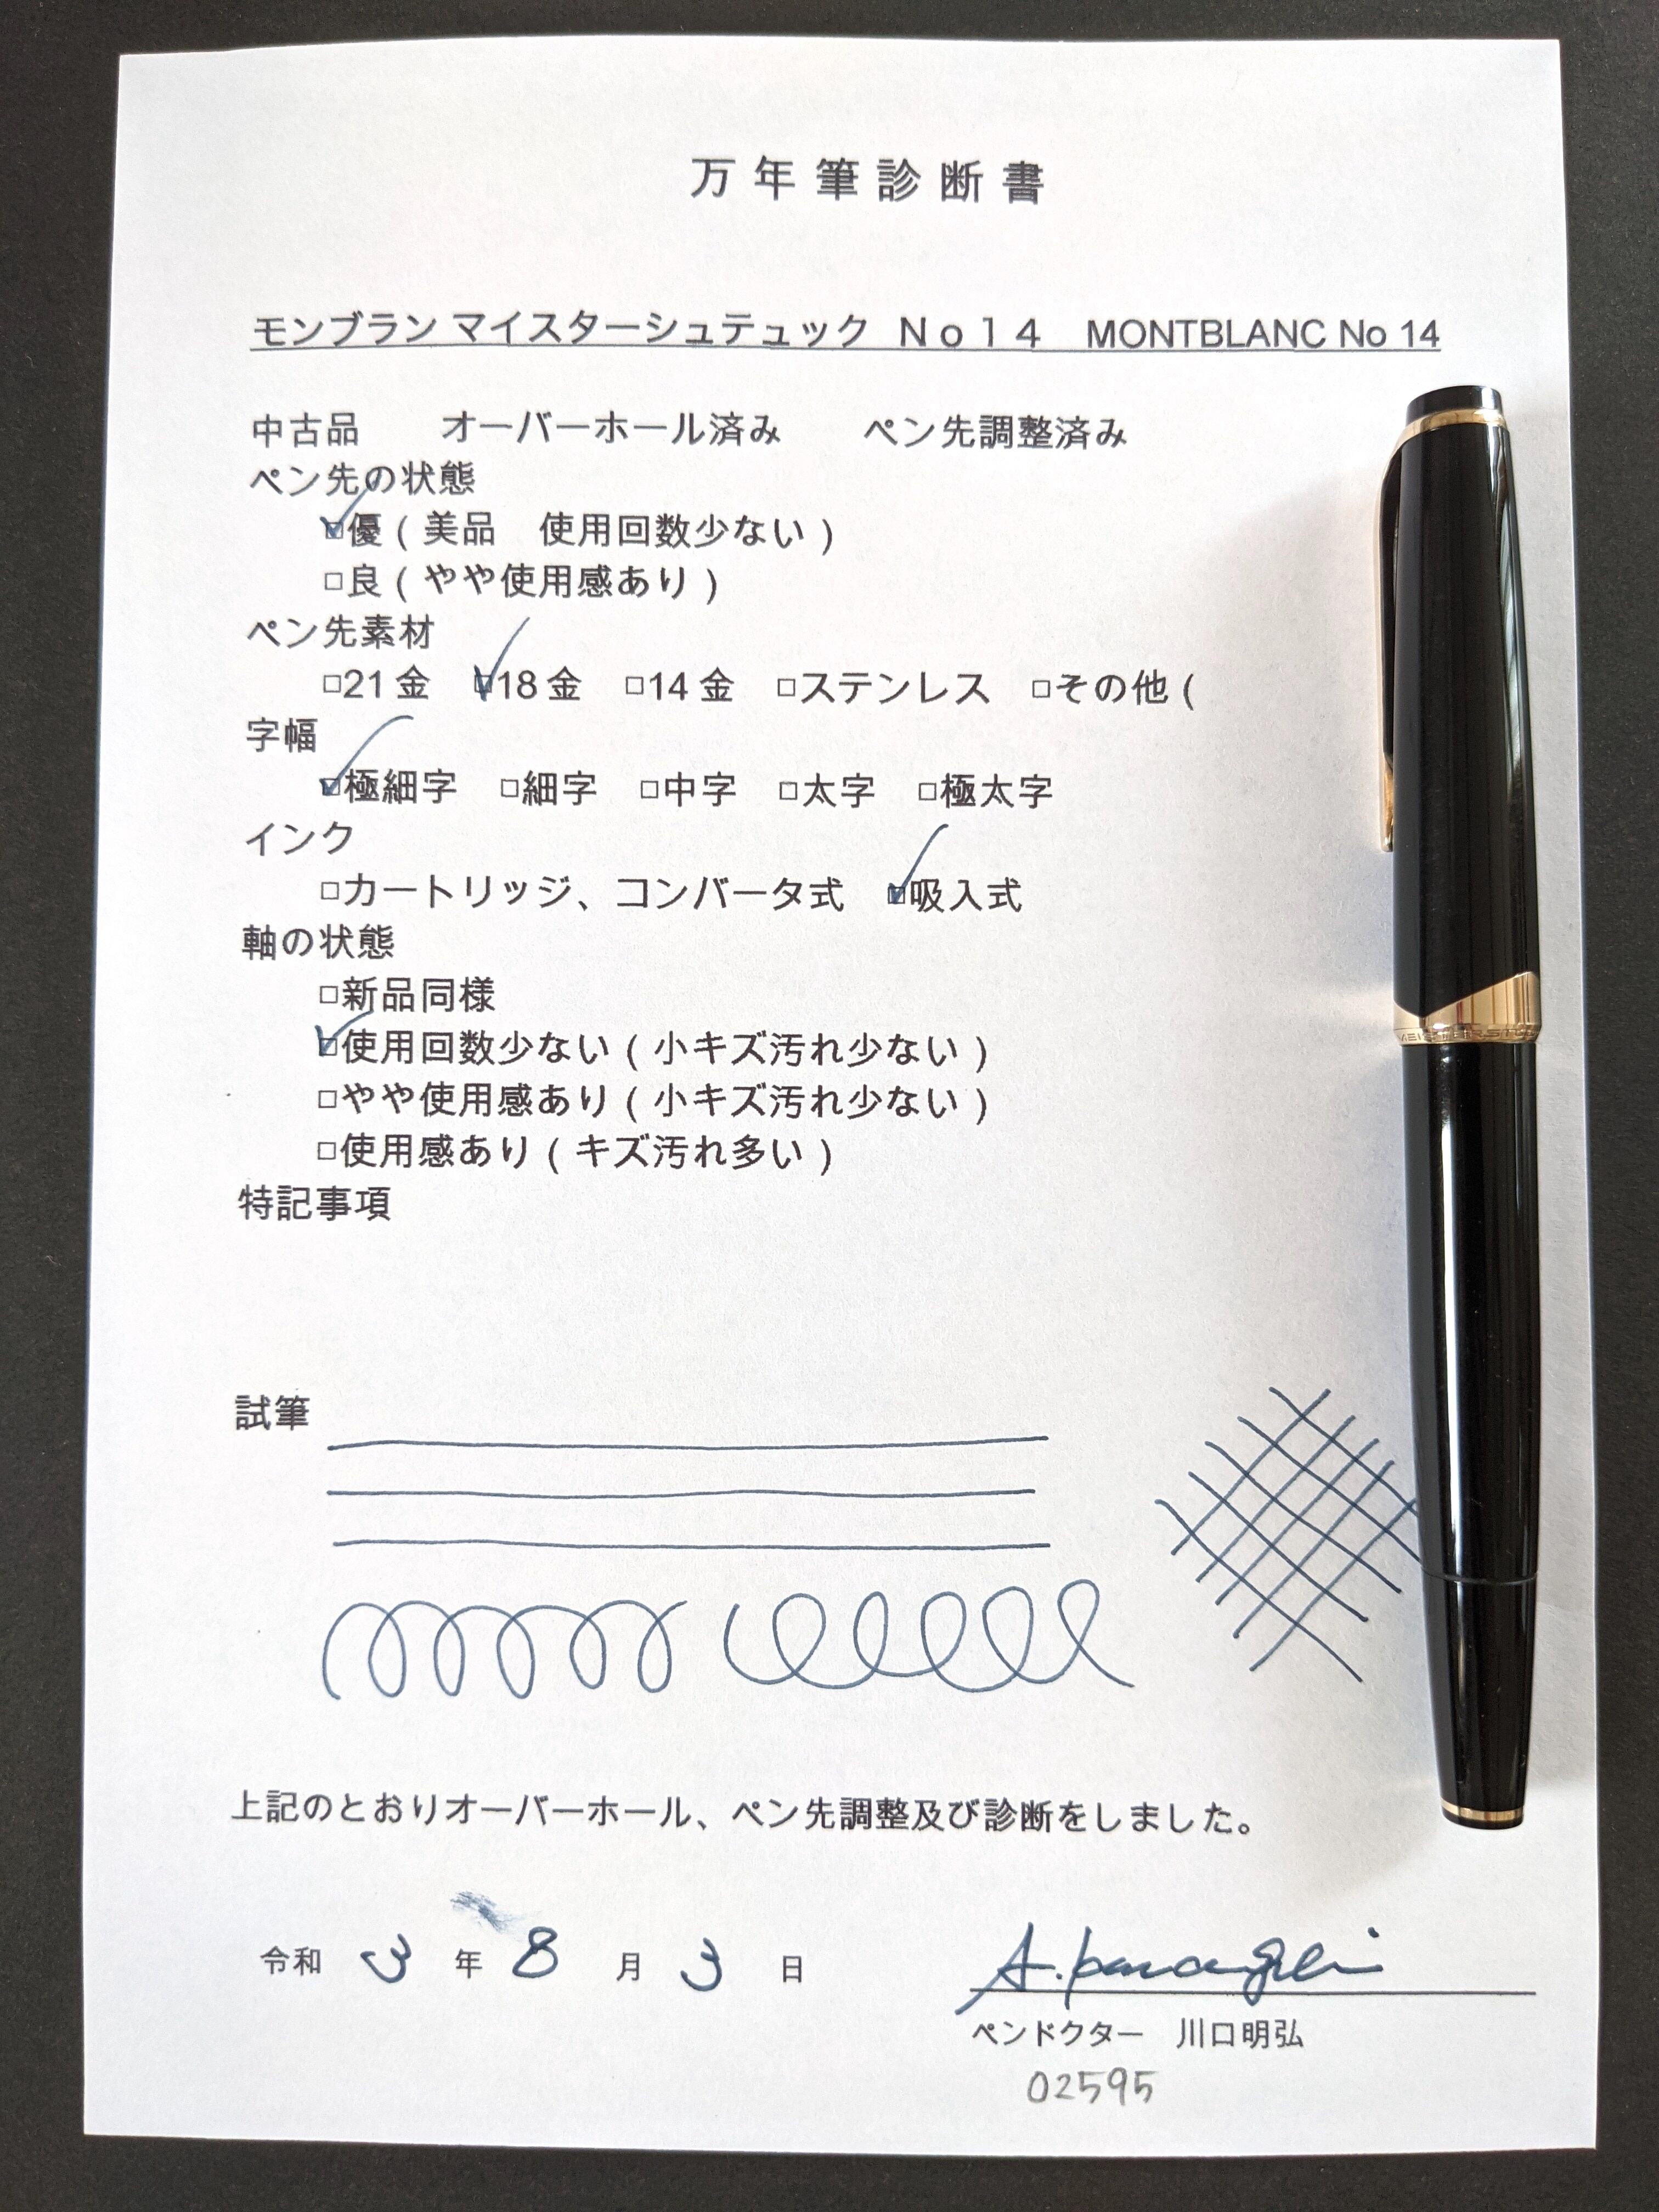 万年筆診断書
モンブラン マイスターシュテュック No14 MONTBLANC No 14
中古品 オーバーホール済み ペン先調整済み
ペン先の状態
☑優(美品 使用回数少ない)
□良(やや使用感あり)
ペン先素材
□21金 ☑18金 □14金 □ステンレス □その他(
字幅
☑極細字 □細字 □中字 □太字 □極太字
インク
□カートリッジ、コンバータ式 ☑吸入式
軸の状態
□新品同様
☑使用回数少ない(小キズ汚れ少ない)
□やや使用感あり(小キズ汚れ少ない)
□使用感あり(キズ汚れ多い)
特記事項
試筆
上記のとおりオーバーホール、ペン先調整及び診断をしました。
令和 3 年 8 月 3 日
ペンドクター 川口明弘
02595